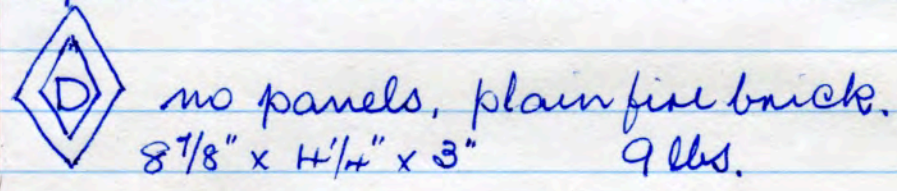 D no panels, plain fire brick.
8 7/8" x 4 1/4" x 3" 9 lbs.